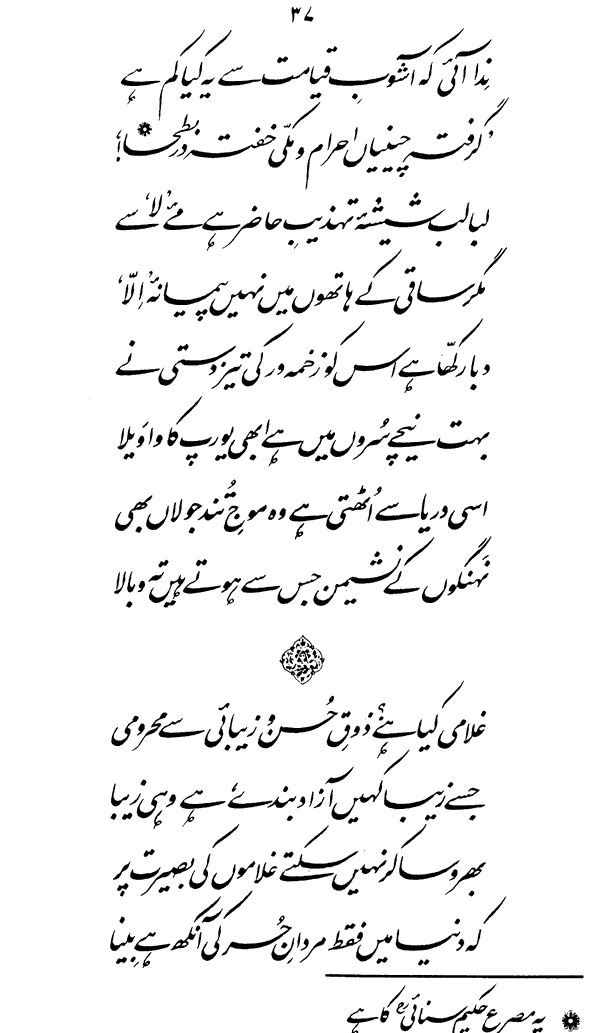 ۳۷
ندا آئی کہ آشوبِ قیامت سے یہ کیا کم ہے
'گرفتہ چینیاں احرام و مکّی خفتہ در بطحا'!*
لبالب شیشۂ تہذیبِ حاضر ہے مئے 'لا' سے
مگر ساقی کے ہاتھوں میں نہیں پیمانۂ 'اِلّا'
دبا رکھّا ہے اس کو زخمہ ور کی تیز دستی نے
بہت نیچے سُروں میں ہے ابھی یورپ کا واویلا
اسی دریا سے اُٹھتی ہے وہ موجِ تُند جولاں بھی
نَہنگوں کے نشیمن جس سے ہوتے ہیں تہ و بالا
غلامی کیا ہے؟ ذوقِ حُسن و زیبائی سے محرومی
جسے زیبا کہیں آزاد بندے، ہے وہی زیبا
بھروسا کر نہیں سکتے غلاموں کی بصیرت پر
کہ دنیا میں فقط مردانِ حُر کی آنکھ ہے بِینا
* یہ مصرع حکیم سنائیؒ کا ہے